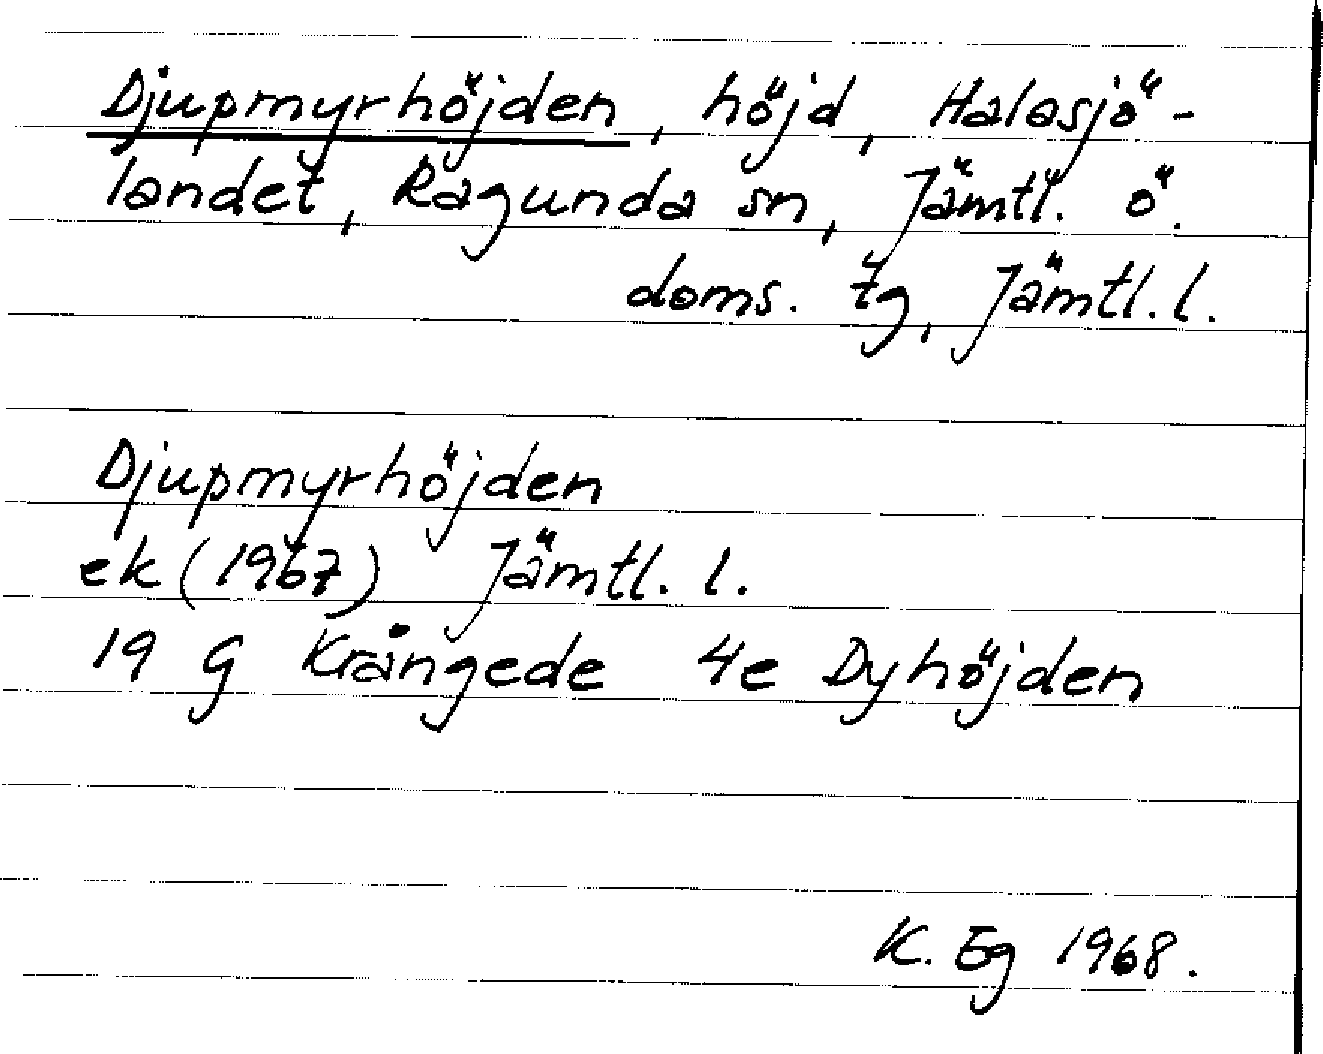 Djupmyrhöjden, höjd, Halasjö-
landet, Ragunda sn, Jämtl. ö.
doms. tg, Jämtl. l.
Djupmyrhöjden
ek (1967) Jämtl. l.
19 G Krångede 4e Dyhöjden
K. Eg 1968.